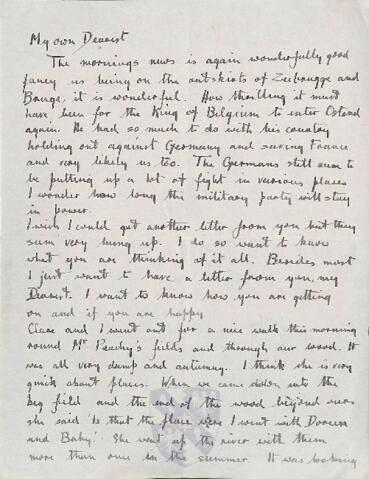 My own Dearest
The mornings news is again wonderfully good
fancy us being on the outskirts of Zeebrugge and
Bruge, it is wonderful. How thrilling it must
have been for the King of Belgium to enter Ostend
again. He had so much to do with his country
holding out against Germany and saving France
and very likely us too. The Germans still seem to
be putting up a lot of fight in various places
I wonder how long the military party will stay
in power.
I wish I could get another letter from you but they
seem very hung up. I do so want to know
what you are thinking of it all. Besides most
I just want to have a letter from you, my
Dearest. I want to know how you are getting
on and if you are happy
and I went out for a nice walk this morning
round Mr Peachy's fields and through our wood. It
was all very damp and autumny. I think she is very
quick about places. When we came down into the
big field and the end of the wood beyond ours
she said 'Is that the place were I went with Doreen
and Baby'. She went up the river with them
more than once in the summer. It was looking